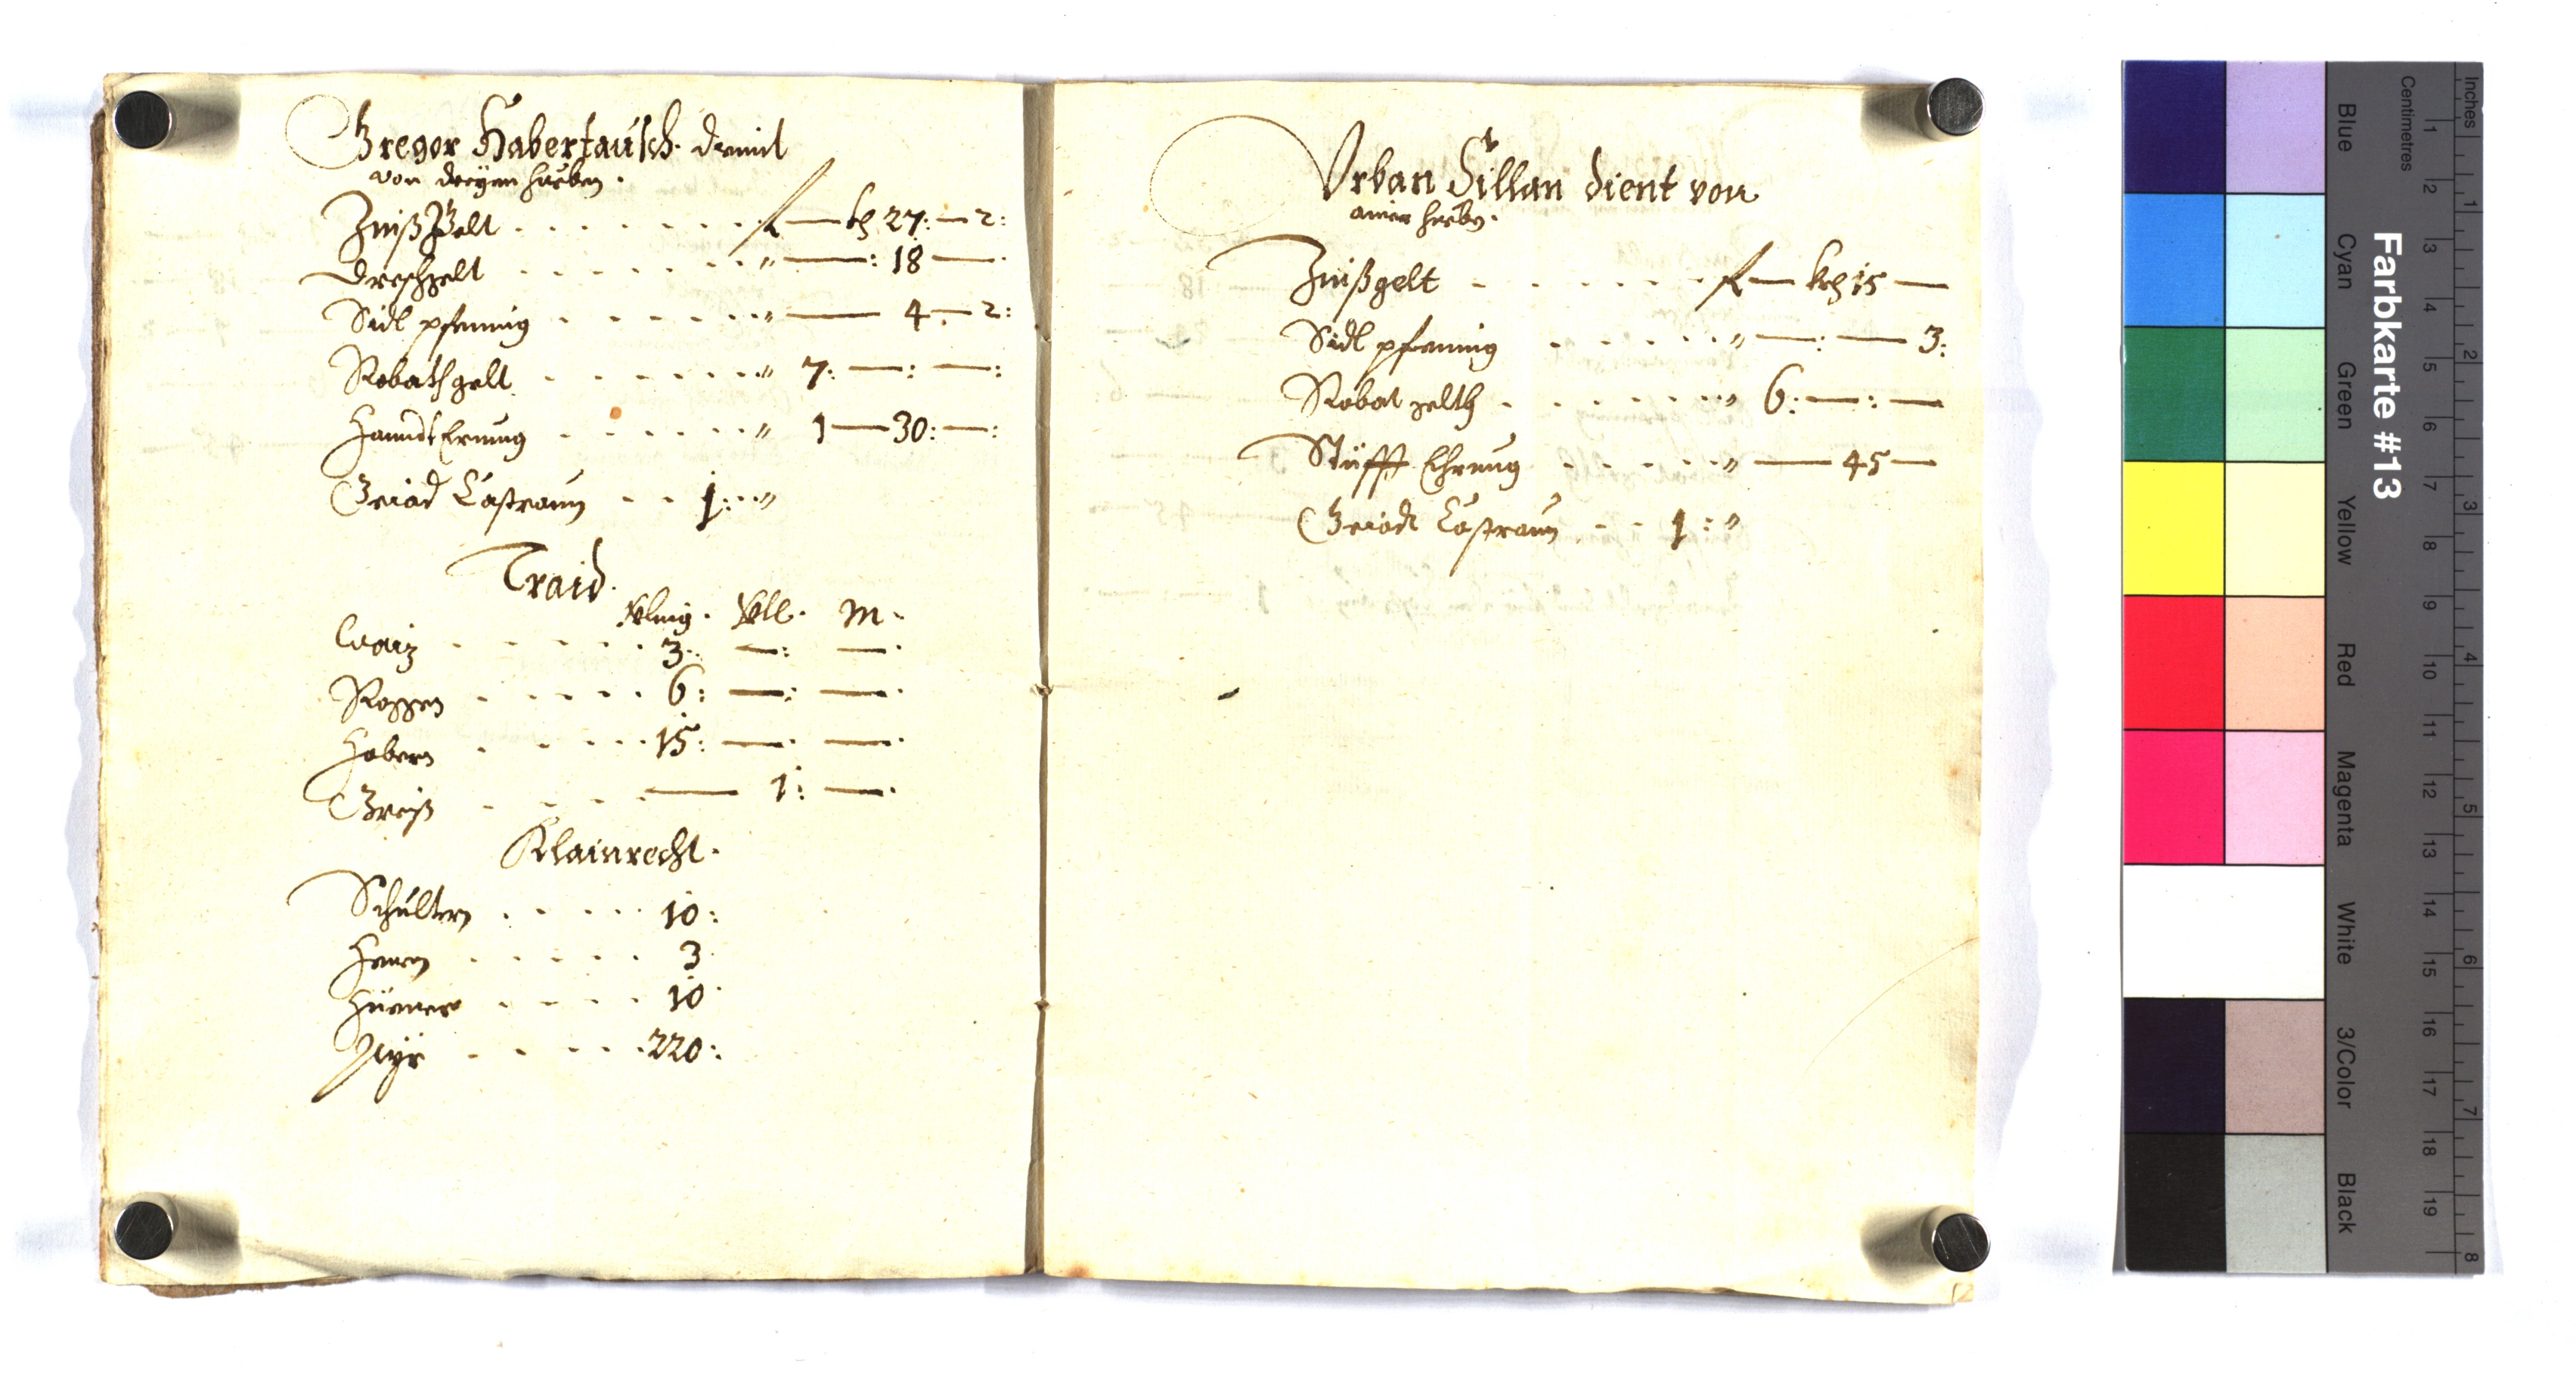 Gregor Habertausch dennil
von dreyen hueben.
ZinßGelt . . . . . . . f — kh 27: — 2:
Dreschgelt . . . . . . . „ — : 18 — .
Sidl pfening . . . . . . „ — 4. — 2:
Robathgelt . . . . . . „ 7: — : — :
Hanndt Erung . . . . . . „ 1 — 30: — :
Gaiad Castraun . . 1: „
Traid.
Vlnig. Vtll. M.
Waiz . . . . . 3: — : — .
Roggen . . . . . 6: — : — .
Habern . . . . . 15: — . — .
Greiß . . . . — 1: — .
Klainrecht.
Schultern . . . . . 10:
Henen . . . . . 3
Hüener . . . . 10
Ayr . . . . . 220:
Vrban Sillan dient von
ainer hueben.
Zinßgelt . . . . . . f — khr 15 —
Sidl pfening . . . . . „ — : — 3:
Robat gelth . . . . . . „ 6: — : —
Stüfft Ehrung . . . . . „ — 45 —
Gaiadt Castraun . . . 1: „
Farbkarte #13
Blue
Cyan
Green
Yellow
Red
Magenta
White
3/Color
Black
Centimetres
1 2 3 4 5 6 7 8 9 10 11 12 13 14 15 16 17 18 19
Inches
1 2 3 4 5 6 7 8